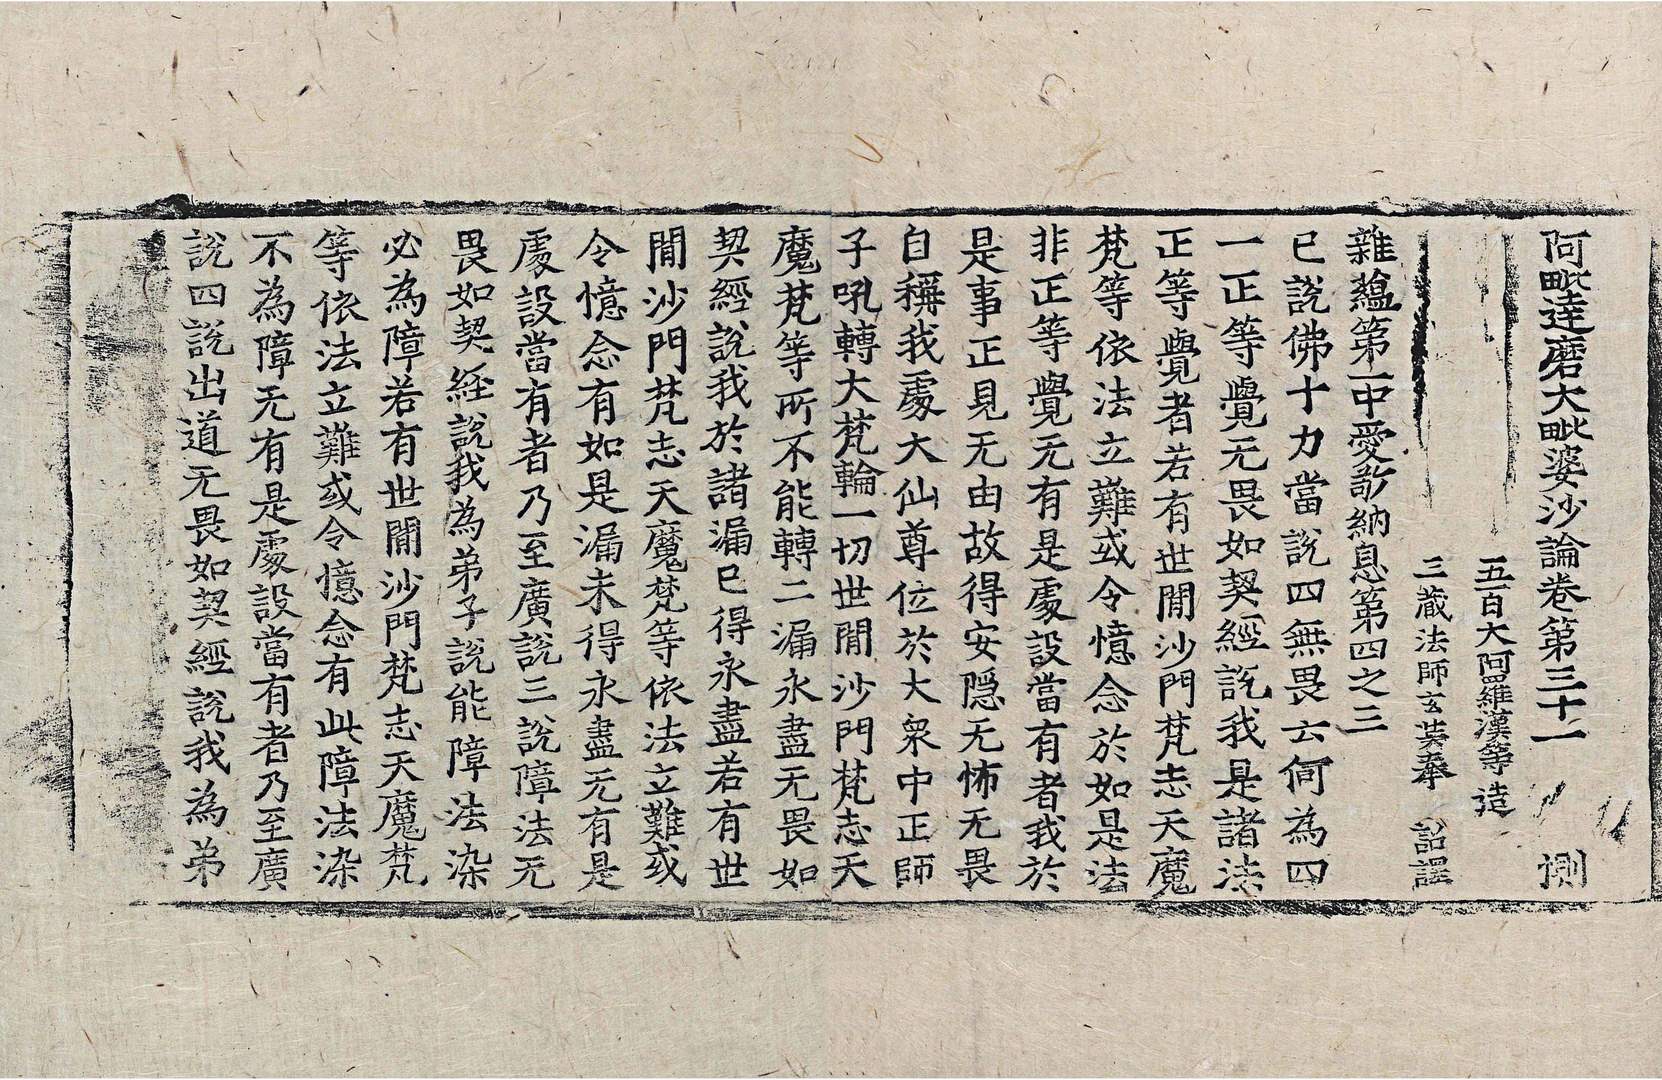 阿毗達磨大毗婆沙論卷第三十一 惻
五百大阿羅漢等造
三藏法師玄奘奉 詔譯
雜蘊第一中愛敬納息第四之三
已說佛十力當說四無畏云何為四
一正等覺无畏如契經說我是諸法
正等覺者若有世閒沙門梵志天魔
梵等依法立難或令憶念於如是法
非正等覺无有是處設當有者我於
是事正見无由故得安隱无怖无畏
自稱我處大仙尊位於大衆中正師
子吼轉大梵輪一切世閒沙門梵志天
魔梵等所不能轉二漏永盡无畏如
契經說我於諸漏已得永盡若有世
閒沙門梵志天魔梵等依法立難或
令憶念有如是漏未得永盡无有是
處設當有者乃至廣說三說障法无
畏如契經說我為弟子說能障法染
必為障若有世閒沙門梵志天魔梵
等依法立難或令憶念有此障法染
不為障无有是處設當有者乃至廣
說四說出道无畏如契經說我為弟